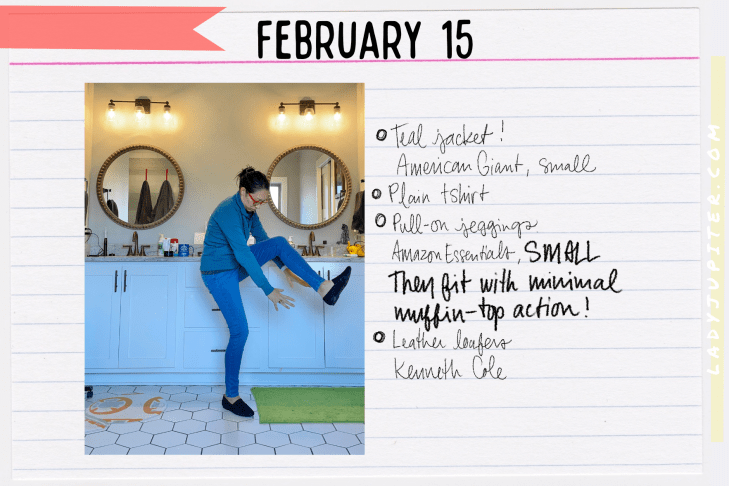 FEBRUARY 15
Teal jacket!
American Giant, small
Plain tshirt
Pull-on jeggings
Amazon Essentials, SMALL
They fit with minimal
muffin-top action!
Leather loafers
Kenneth Cole
LADYJUPITER.COM